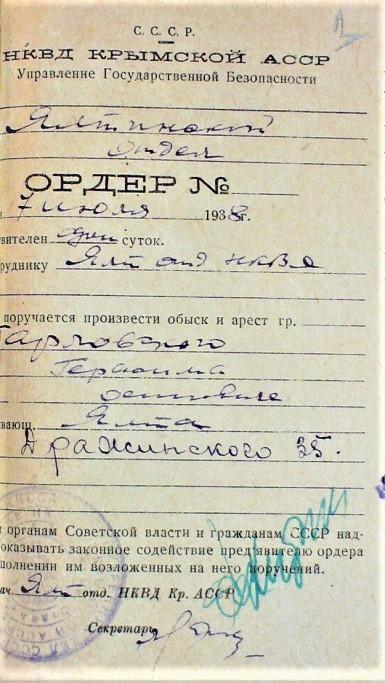 С. С. С. Р.
НКВД КРЫМСКОЙ АССР
Управление Государственной Безопасности
Ялтинский
отдел
ОРДЕР №
7 июля 1938г.
твителен один суток.
руднику Ялт отд НКВД
поручается произвести обыск и арест гр.
Тарловского
Герасима
Осиповича
вающ. Ялта
Дражинского 35.
и органам Советской власти и гражданам СССР над-
оказывать законное содействие пред'явителю ордера
полнении им возложенных на него поручений.
ач. Ялт отд. НКВД Кр. АССР
Секретарь